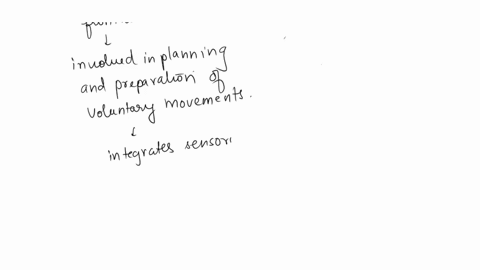 involved in planning
and preparation of
voluntary movements.
integrates sensori